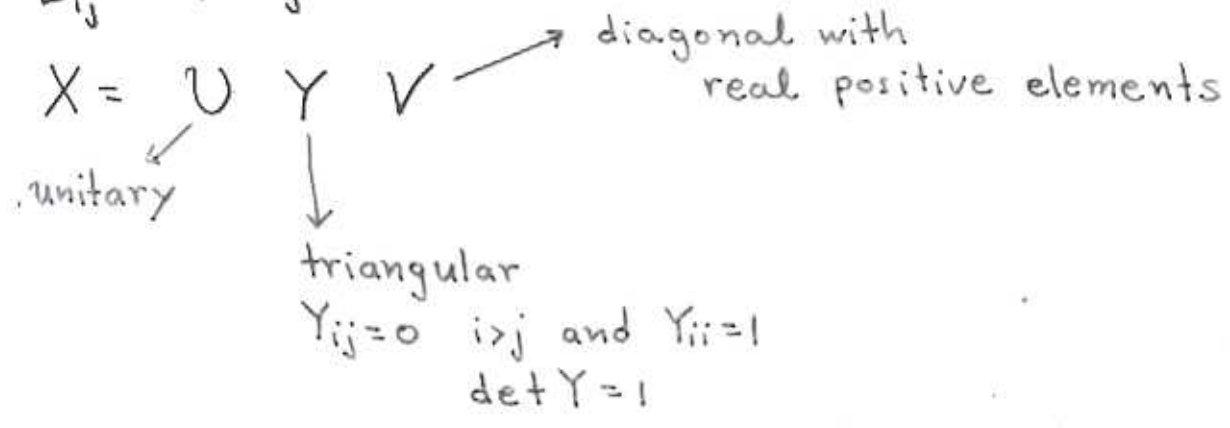 diagonal with
X = U Y V real positive elements
unitary
triangular
Yij=0 i>j and Yii=1
det Y=1